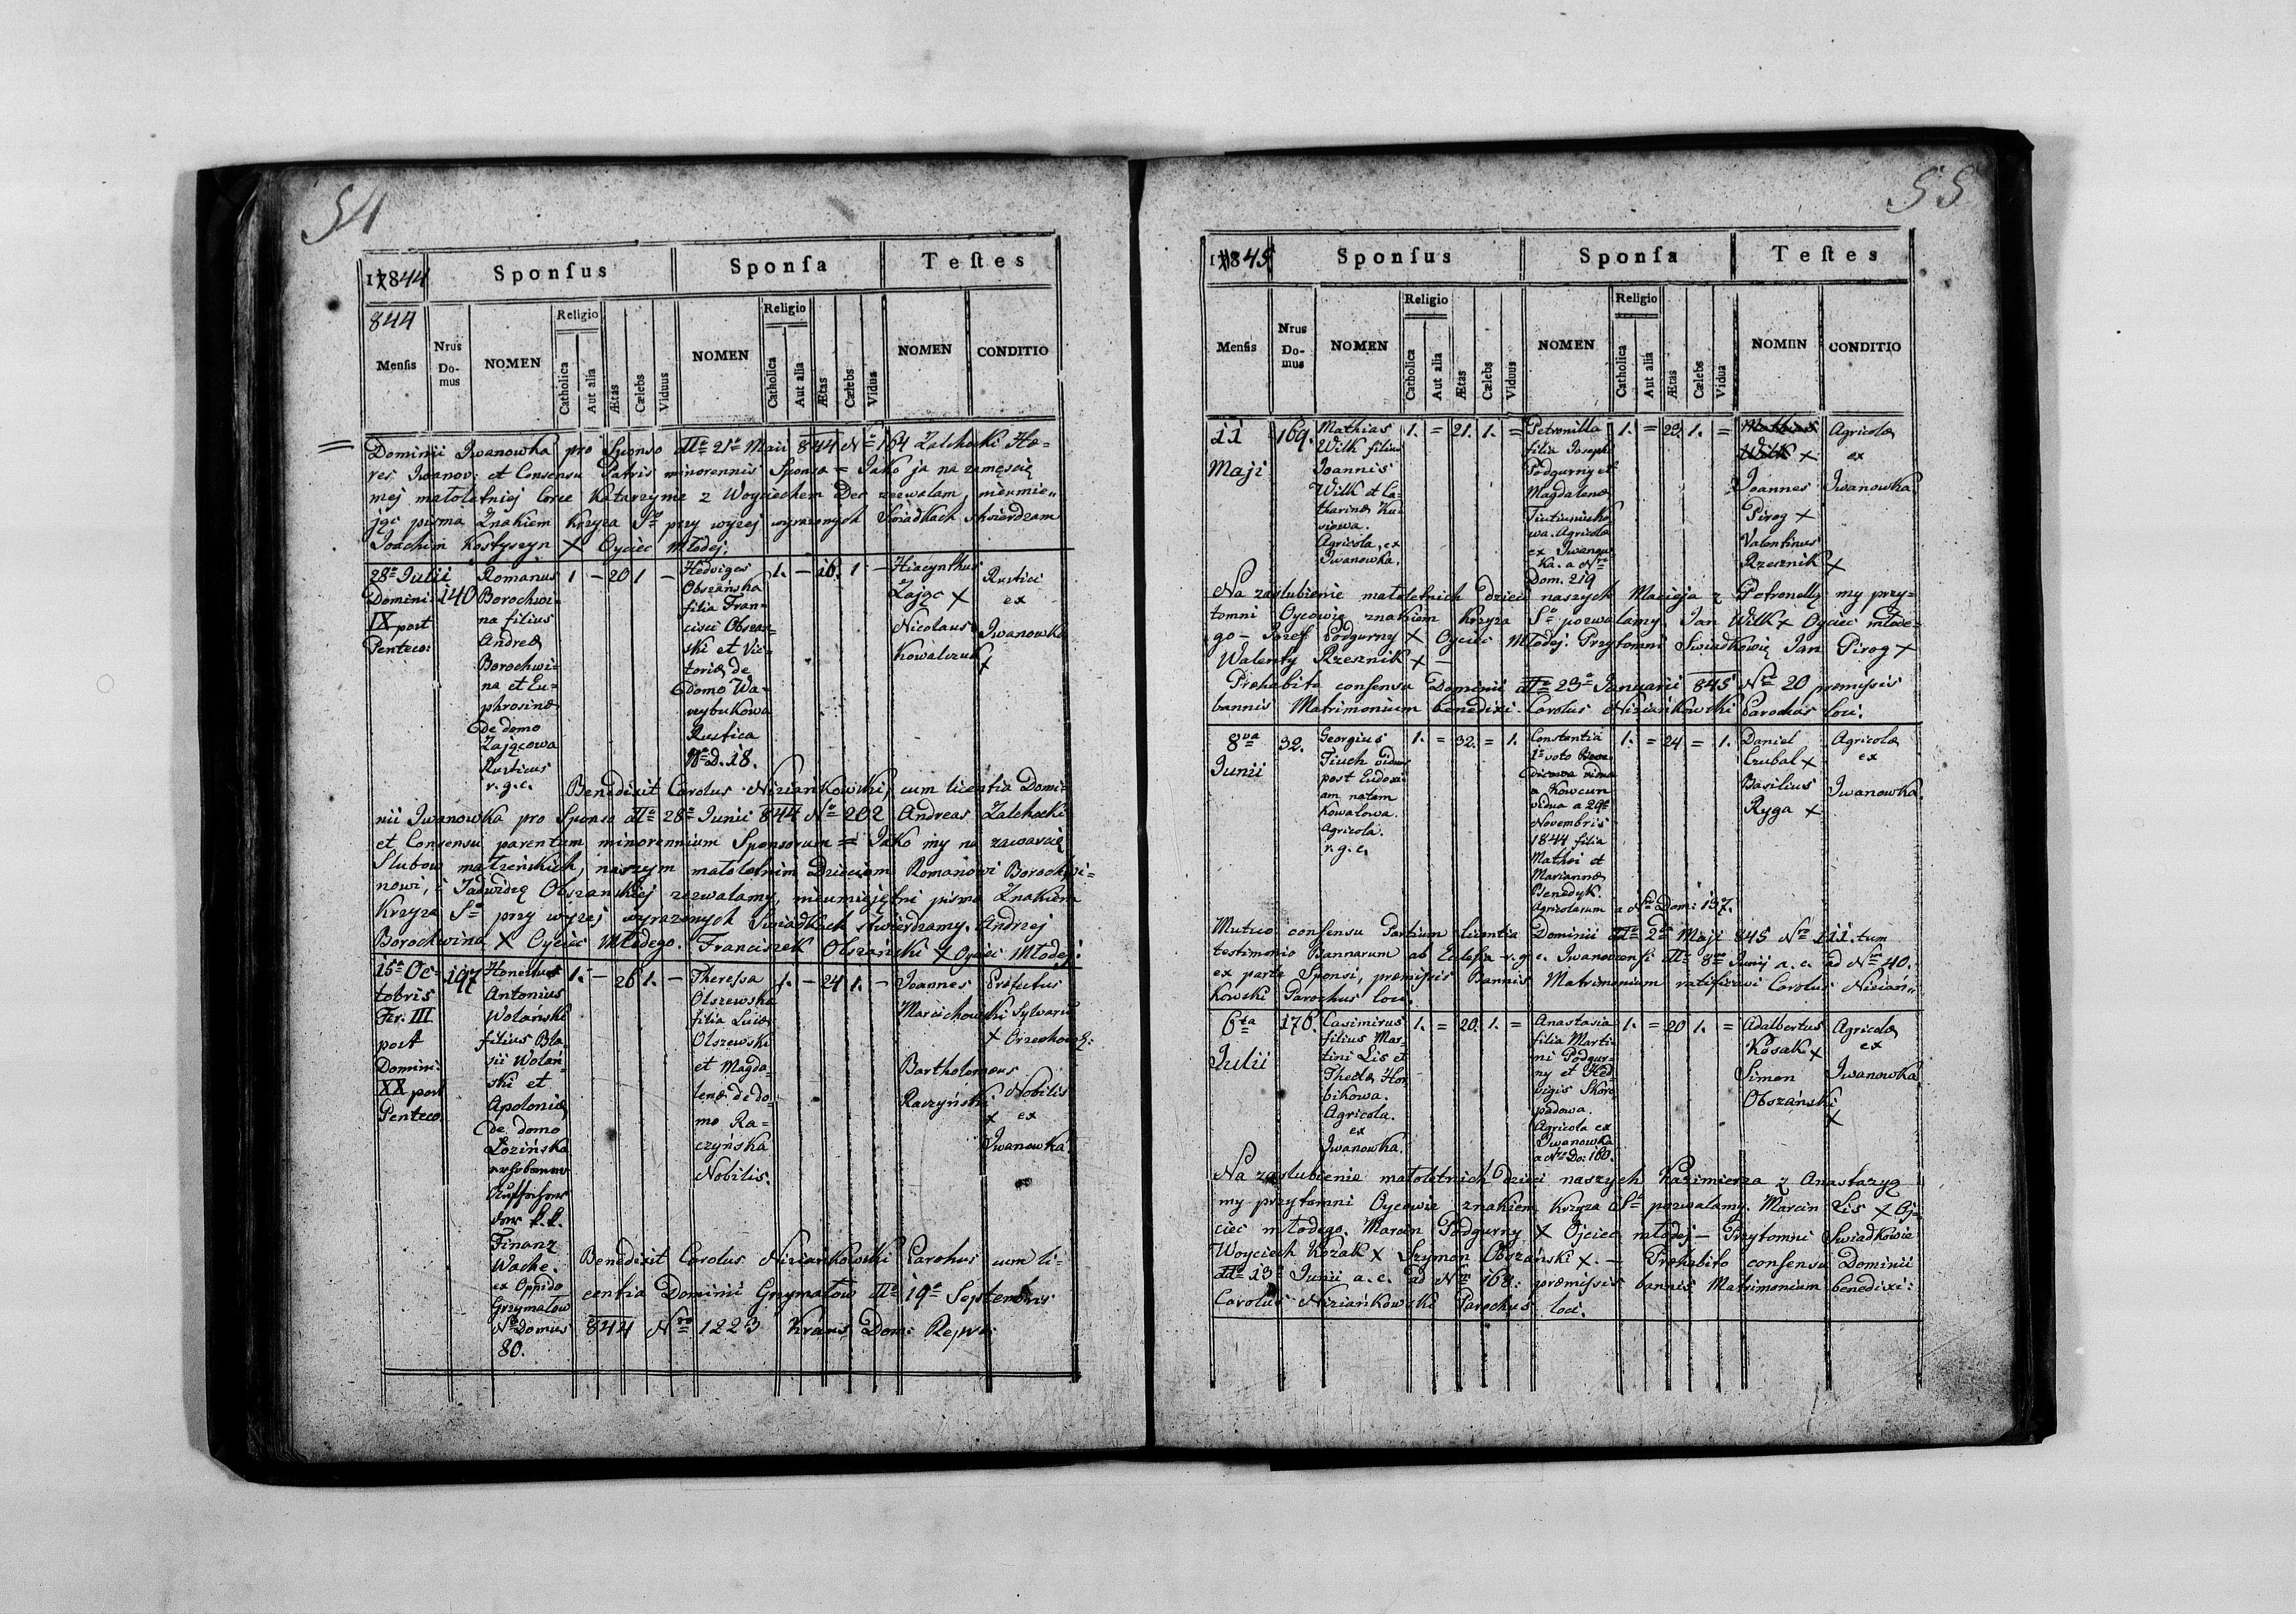 54
1844
Sponſus
Sponſa
Teſtes
844
Menſis
Nrus Do-mus
NOMEN
Religio
Catholica
Aut alia
Ætas
Cælebs
Viduus
NOMEN
Religio
Catholica
Aut alia
Ætas
Cælebs
Vidua
NOMEN
CONDITIO
Dominii Iwanowka pro Sponso dto 21a Maii 844 No 164 Zalchocki Hæ-
res Iwanov: et Consensu Patris minorennis Sponsa = Jako ja na zamęście
mej małoletniej Corce Katarzyme z Woyciechem Dec zezwalam, nieumie-
jąc pisma Znakiem Krzyża So przy wyzej wyrazonych Świadkach stwierdzam
Joachim Kostyszyn X Oyciec Młodej.
28a Julii
Domini:
IX post
Penteco:
140
Romanus
Borochwi-
na filius
Andreæ
Borochwi-
na et Eu-
phrosinæ
de domo
Zającowa
Rusticus
r. g. c.
1 – 20 1 –
Hedviges
Obszańska
filia Fran-
cisci Obszań-
ski et Vic-
toriæ de
Domo Wa-
Rustica
No D. 18.
1. – 16. 1 –
Hiacynthus
Zając X
Nicolaus
Kowalczuk
X
Rustici
ex
Iwanowka
Benedixit Carolus Niziańkowski, cum licentia Domi-
nii Iwanowka pro Sponsa dto 28a Junii 844 No 202 Andreas Zalchocki
et Consensu parentum minorennium Sponsorum = Jako my na zawarcie
Slubow małżeńskich, naszym małoletnim Dzieciom Romanowi Borochwi-
nowi, i Jadwidze Obszanskiej zezwalamy, nieumiejętni pisma Znakiem
Krzyża So przy wyzej wyrazonych Swiadkach stwierdzamy. Andrzej
Borochwina X Oyciec Młodego. Franciszek Obszański X Oyciec Młodej:
15a Oc-
tobris
Fer. III
post
Domini:
XX post
Penteco.
197
Honestus
Antonius
Wolański
filius Bla-
sii Wolań-
ski et
Apoloniæ
de domo
Łozińska
k. k.
Finanz
Wache.
ex Oppido
Grzymałow
No Domus
80.
1. – 26 1. –
Theressa
Olszewska
filia Lucæ
Olszewski
et Magda-
lenæ de do-
mo Ra-
czyńska
Nobilis.
1. – 24 1. –
Joannes
Marcichowski
X
Bartholomæus
Raczyński
X
Præfectus
Sylvarum
Nobilis
ex
Iwanowka.
Benedixit Carolus Niziańkowski Parohus cum li-
centia Dominii Grzymałow dto 19a Septembris
844 Nro 1223 Kraus Dom:
55
1845
Sponſus
Sponſa
Teſtes
Menſis
Nrus Do-mus
NOMEN
Religio
Catholica
Aut alia
Ætas
Cælebs
Viduus
NOMEN
Religio
Catholica
Aut alia
Ætas
Cælebs
Vidua
NOMEN
CONDITIO
11
Maji
169.
Mathias
Wilk filius
Joannis
Wilk et Ca-
tharinæ
Agricola, ex
Iwanowka.
1. = 21. 1. =
Petronilla
filia Josephi
Podgurny et
Magdalenæ
wa. Agricolæ
ex Iwanow-
ka. a Nro
Dom. 219
1. = 23. 1. =
Mathias
Wilk X
Joannes
Pirog X
Valentinus
Rzesznik X
Agricolæ
ex
Iwanowka.
Na zaslubienie małoletnich dzieci naszych Macieja z Petronellą my przy-
tomni Oycowie znakiem Krzyża So pozwalamy. Jan Wilk X Oyciec młode-
go – Jozef Podgurny X Oyciec Młodej. Przytomni Swiadkowie Jan Pirog X
Walenty Rzesznik X –
Præhabito consensu Dominii dto 23a Januarii 845 Nro 20 præmissis
bannis Matrimonium benedixi. Carolus Niziańkowski Parochus loci.
8va
Junii
32.
Georgius
Tiuch viduus
post Eudoxi-
am natam
Kowalowa.
Agricola.
r. g. c.
1. = 32. = 1.
Constantia
1o voto
vidua
a Kowcun
vidua a 29a
Novembris
1844 filia
Mathei et
Mariannæ
Benedyk.
Agricolarum a Nro Dom: 137.
1. = 24 = 1.
Daniel
Czubal X
Basilius
Ryga X
Agricolæ
ex
Iwanowka.
Mutuo consensu Partium licentia Dominii dto 2da Maji 845 Nro 111. tum
testimonio Bannarum ab Eclesia r. g. c. Iwanoviensi dto 8va Junij a. c. ad Nrm 40.
ex parte Sponsi, præmissis Bannis Matrimonium ratificavi Carolus Niziań-
kowski Parochus loci.
6ta
Julii
176.
Casimirus
filius Mar-
tini Lis et
Theclæ Hor-
bikowa.
Agricola.
ex
Iwanowka.
1. = 20. 1. =
Anastasia
filia Marti-
ni Podgur-
ny et Hed-
vigis Skoro-
padowa.
Agricola ex
Iwanowka
a Nro Do: 160.
1. = 20 1. =
Adalbertus
Kosak X
Simon
Obszański
X
Agricolæ
ex
Iwanowka
Na zaslubienie małoletnich dzieci naszych Kazimierza z Anastazyą
my przytomni Oycowie znakiem Krzyża So pozwalamy. Marcin Lis X Oj-
ciec młodego. Marcin Podgurny X Ojciec młodej – Przytomni Swiadkowie
Woyciech Kozak X Szymon Obszański X. – Præhabito consensu Dominii
dto 13a Junii a. c. ad Nrm 168: præmissis bannis Matrimonium benedixi:
Carolus Niziańkowski Parochus loci.